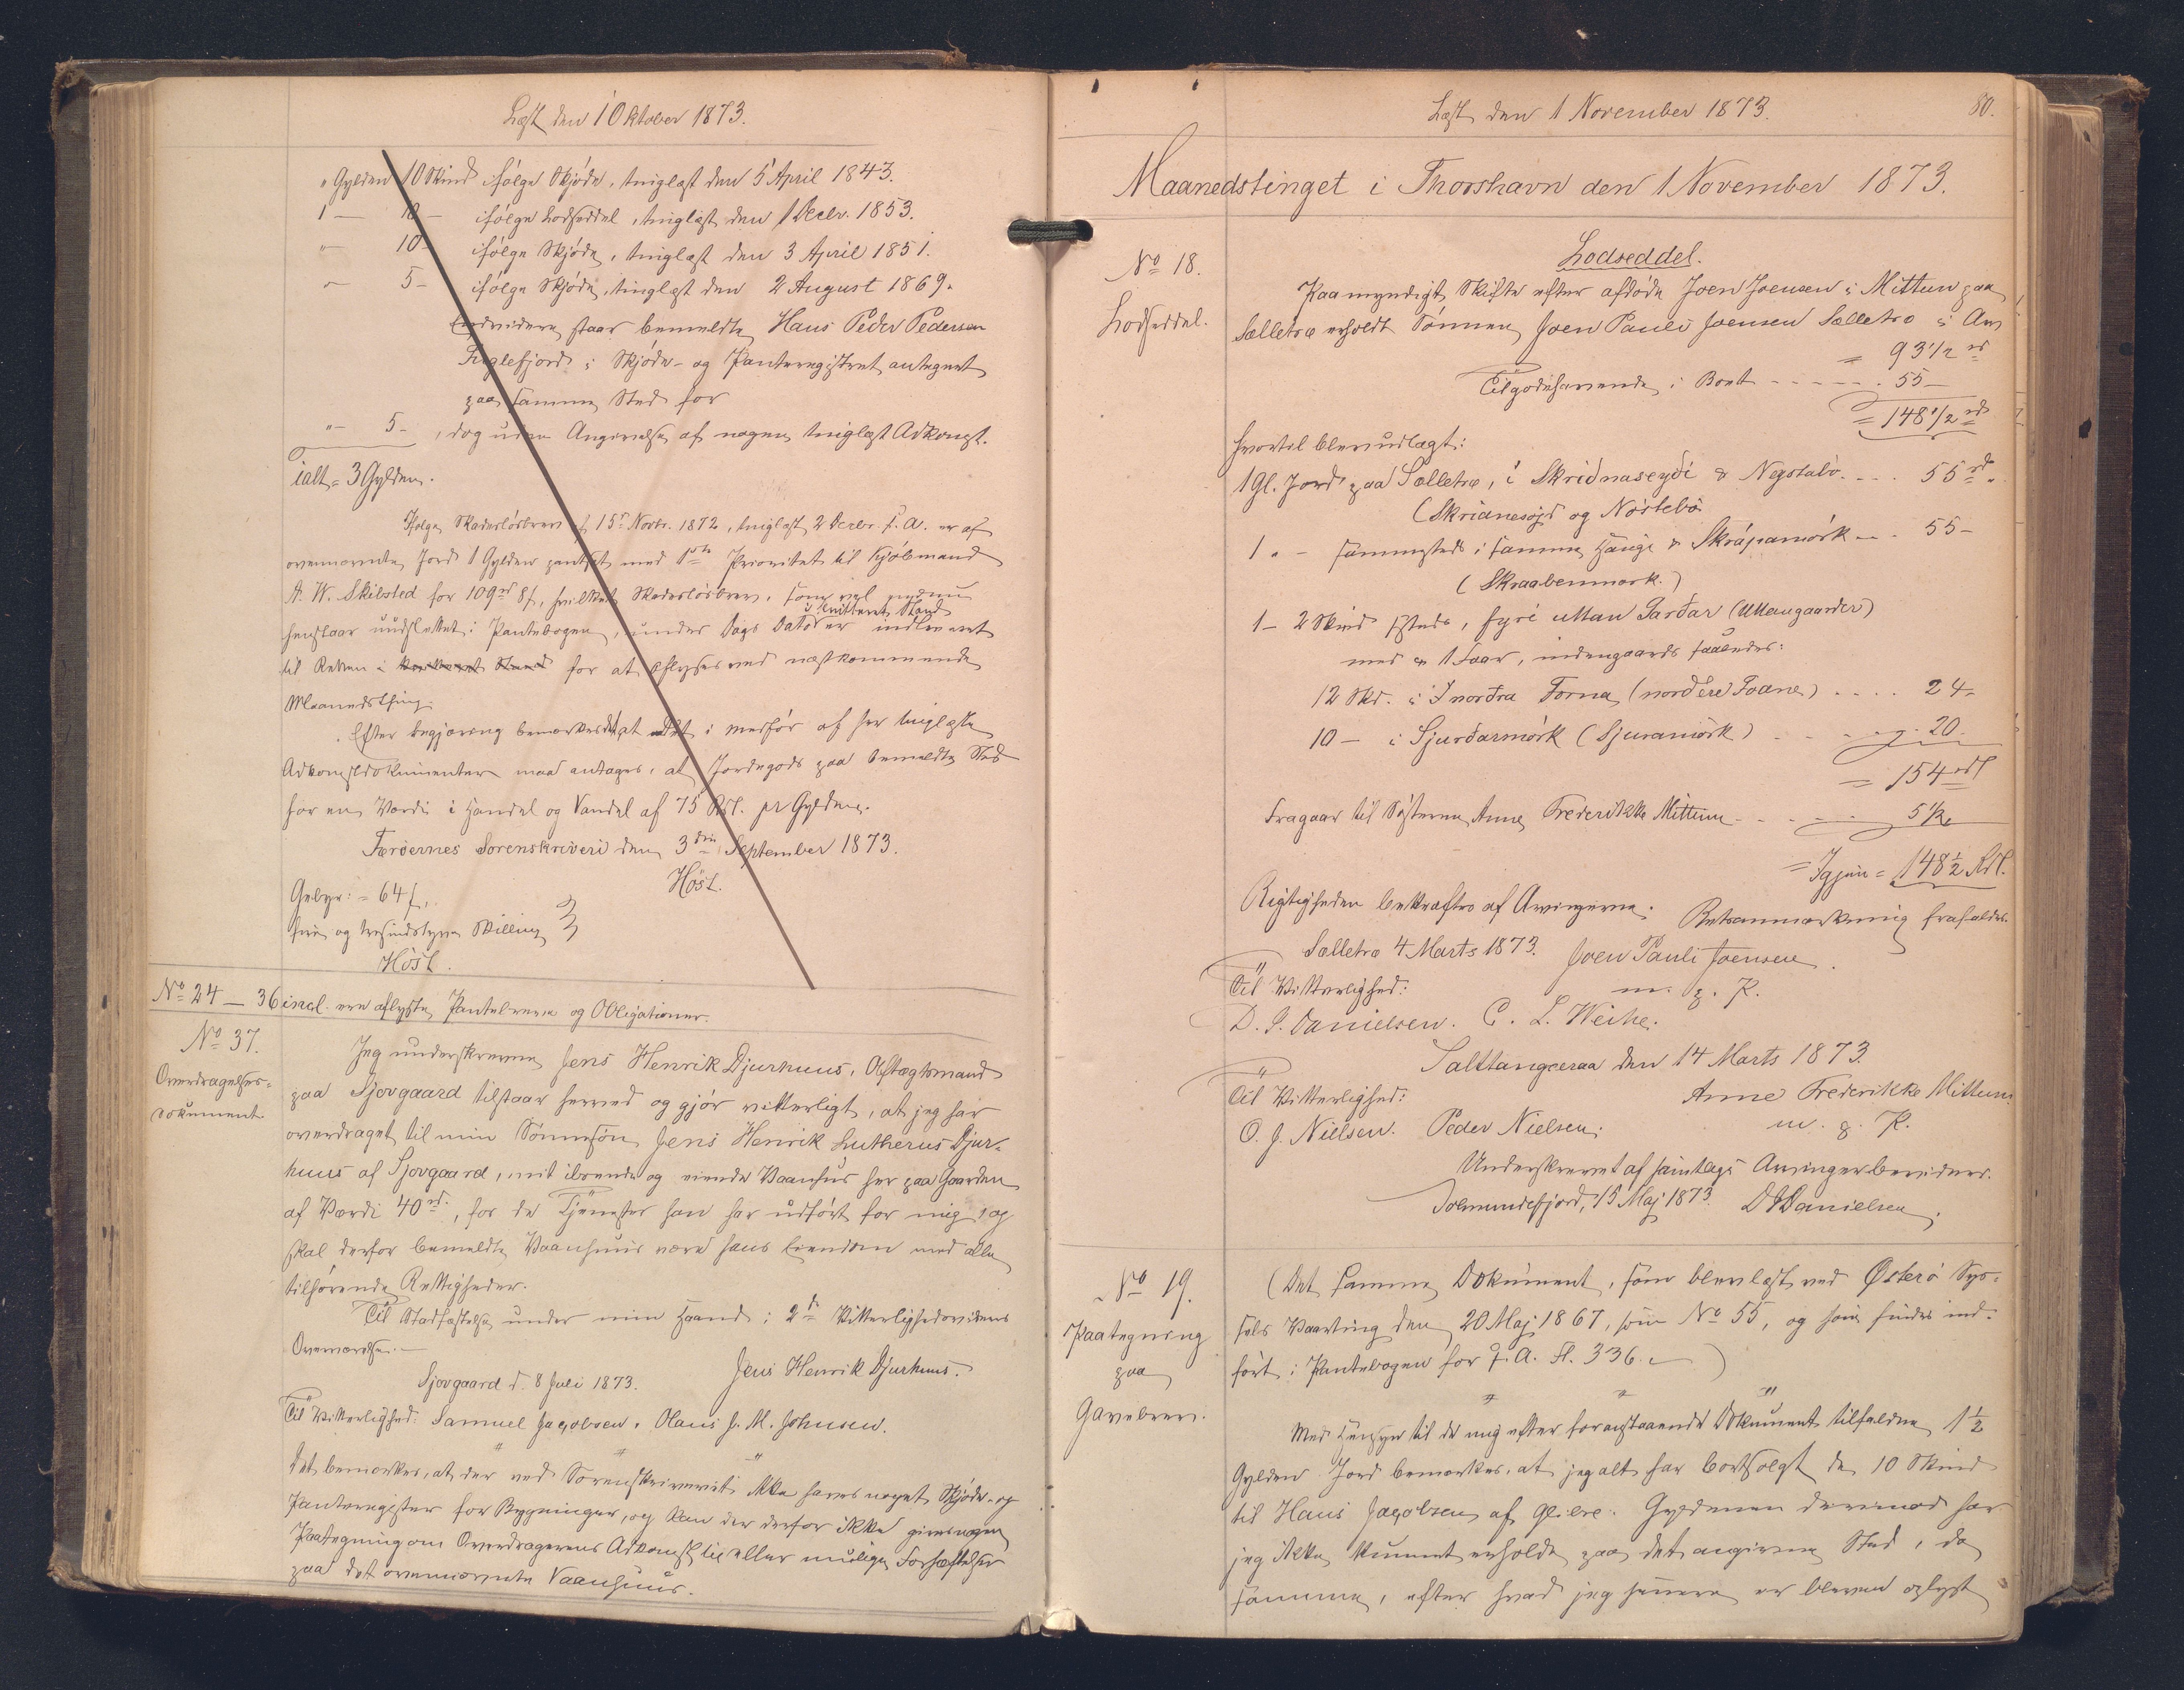 Læst den 1 Oktober 1873.
" Gylden 10 Skind ifølge Skjøde, tinglæst den 5 April 1843.
1 — 10 — ifølge Lodseddel, tinglæst den 1 Decbr. 1853.
" — 10 - ifølge Skjøde, tinglæst den 3 April 1851.
" — 5 - ifølge Skjøde, tinglæst den 2 August 1869.
Endvidere staar bemeldte Hans Peder Pedersen
Fuglefjord i Skjøde- og Panteregistret antegnet
paa samme Sted for
" — 5 - , dog uden Angivelse af nogen tinglæst Adkomst.
ialt = 3 Gylden.
Ifølge Skadesløsbrev af 15de Novbr. 1872, tinglæst 2 Decbr. s. A. er af
ovennævnte Jord 1 Gylden pantsat med 1ste Prioritet til Kjøbmand
A. W. Skibsted for 109 rd 8 s, hvilket Skadesløsbrev, som vel endnu
i kvitteret Stand
henstaar uudslettet i Pantebogen, under Dags Dato er indleveret
til Retten i kvitteret Stand for at aflyses ved næstkommende
Maanedsthing.
Efter Begjæring bemærkes det, at det i Medfør af her tinglæste
Adkomstdokumenter maa antages, at Jordegods paa bemeldte Sted
har en Værdi i Handel og Vandel af 75 Rdl. pr Gylden.
Færøernes Sorenskriveri den 3die September 1873.
Høst.
Gebyr: = 64 s,
fire og tresindstyve Skilling
Høst.
No 24 — 36 incl. ere aflyste Pantebreve og Obligationer.
No 37.
Overdragelses-
dokument.
Jeg underskrevne Jens Henrik Djurhuus, Aftægtsmand
paa Sjovgaard tilstaar herved og gjør vitterligt, at jeg har
overdraget til min Sønnesøn Jens Henrik Lutherus Djur-
huus af Sjovgaard, mit iboende og eiende Vaanhus her paa Gaarden
af Værdi 40 rd., for de Tjenester han har udført for mig, og
skal derfor bemeldte Vaanhuus være hans Eiendom med alle
tilhørende Rettigheder.
Til Stadfæstelse under min Haand i 2de Vitterlighedsvidners
Overværelse. —
Sjovgaard d. 8 Juli 1873. Jens Henrik Djurhuus.
Til Vitterlighed: Samuel Jacobsen. Hans J. M. Johnsen.
Det bemærkes, at der ved Sorenskriveriet ikke haves noget Skjøde- og
Panteregister for Bygninger, og kan der derfor ikke gives nogen
Paategning om Overdragerens Adkomst til eller mulige Forhæftelser
paa det ovennævnte Vaanhuus.
Læst den 1 November 1873.
80.
Maanedstinget i Thorshavn den 1 November 1873.
No 18.
Lodseddel.
Lodseddel.
Paa myndigt Skifte efter afdøde Joen Joensen i Mittun paa
Sælletræ erholdt Sønnen Joen Pauli Joensen Sælletræ i Arv
= 93 1/2 rd
Tilgodehavende i Boet - - - - - . 55 —
= 148 1/2 rd
hvortil blev udlagt:
1 Gl. Jord paa Sælletræ, i Skriðnaseyði & Negstabø. - - . 55 rd.
(Skrianesøjd og Nøstebø
1 " - sammesteds i samme Hauge & Skrápamørk - - . 55 -
(Skraabenmørk.)
1 - 2 Skind ssteds, fyri uttan Garðar (Uttangaarder)
med & 1 Faar, indengaards saaledes:
12 Skd. i Í norðra Forna (nordere Foane) . . . . 24 -
10 — i Sjurðarmørk (Sjuramørk) - - - - 20.
= 154 rdl
Fragaar til Søsteren Anne Frederikke Mittum - - - - 5 1/2
= Igjen = 148 1/2 Rdl.
Rigtigheden bekræftes af Arvingerne. Retsanmærkning frafaldes.
Sælletræ 4 Marts 1873. Joen Pauli Joensen.
Til Vitterlighed: m. p. P.
D. J. Danielsen. C. L. Weihe.
Salttangeraa den 14 Marts 1873.
Til Vitterlighed: Anne Frederikke Mittum
O. J. Nielsen. Peder Nielsen. m. p. P.
Underskrevet af samtlige Arvinger bevidner.
Solmundefjord, 15 Maj 1873. D J Danielsen.
No 19.
Paategning
paa
Gavebrev.
(Det samme Dokument, som blev læst ved Østerø Sys-
sels Vaarting den 20 Maj 1867, som No 55, og som findes ind-
ført i Pantebogen for f. A. fl. 336.)
Med Hensyn til de mig efter foranstaaende Dokument tilfaldne 1 1/2
Gylden Jord bemærkes, at jeg alt har bortsolgt de 10 Skind
til Hans Jacobsen af Glibre. Gyldenen derimod har
jeg ikke kunnet erholde paa det angivne Sted, da
samme, efter hvad jeg senere er bleven oplyst